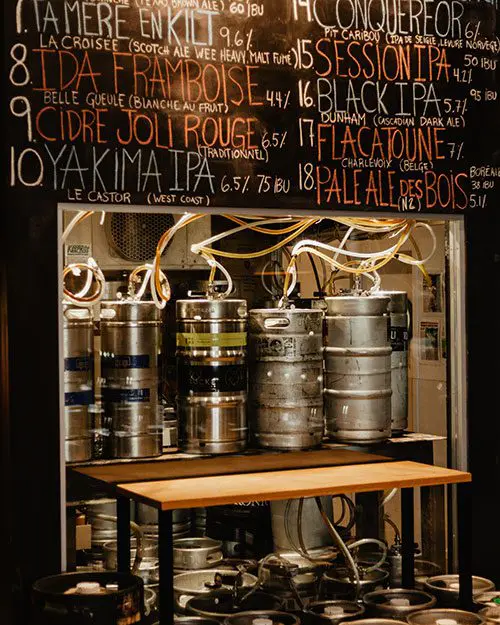 60 IBU
7. TA MÈRE EN KILT 9.6%
LA CROISÉE (SCOTCH ALE WEE HEAVY, MALT FUMÉ)
8 IDA FRAMBOISE 4.4%
BELLE GUEULE (BLANCHE AU FRUIT)
9. CIDRE JOLI ROUGE 6.5%
(TRADITIONNEL)
10. YAKIMA IPA 6.5% 75 IBU
LE CASTOR (WEST COAST)
14 CONQUÉFOR 6%
PIT CARIBOU (IPA DE SEIGLE, LEVURE NORVÈG)
15 SESSION IPA 4.2%
50 IBU
16. BLACK IPA 5.7%
95 IBU
DUNHAM (CASCADIAN DARK ALE)
17 FLACATOUNE 7%
CHARLEVOIX (BELGE)
18. PALE ALE DES BOIS
(N2)
BORÉALE
38 IBU
5.1%